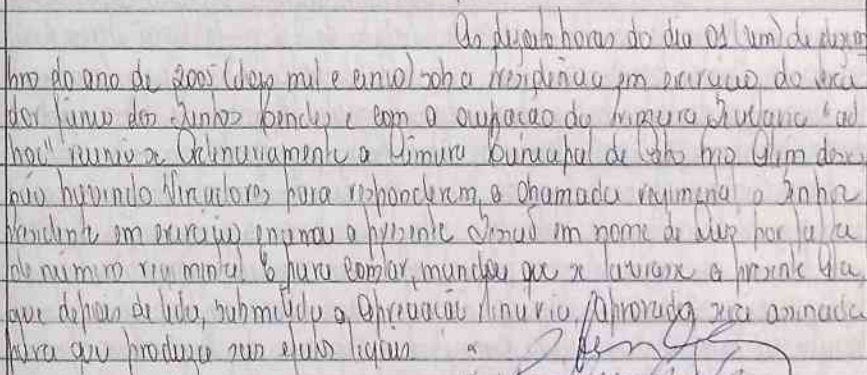 As dezoito horas do dia 01 (um) de dezem
bro do ano de 2005 (dois mil e cinco) sob a Presidência em exercício do Verea
dor dos Santos Mendes e com a ocupação da Primeira Secretaria "ad
hoc" reuniu-se Ordinariamente a Câmara Municipal de Cabo Frio. Além desse
não havendo Vereadores para responderem a chamada regimental o Senhor
Presidente em exercício encerrou a presente Sessão em nome de Deus por falta
de número regimental. E para constar, mandou que se lavrasse a presente Ata
que depois de lida, submetida a Apreciação Plenária, Aprovada será assinada
para que produza seus efeitos legais.